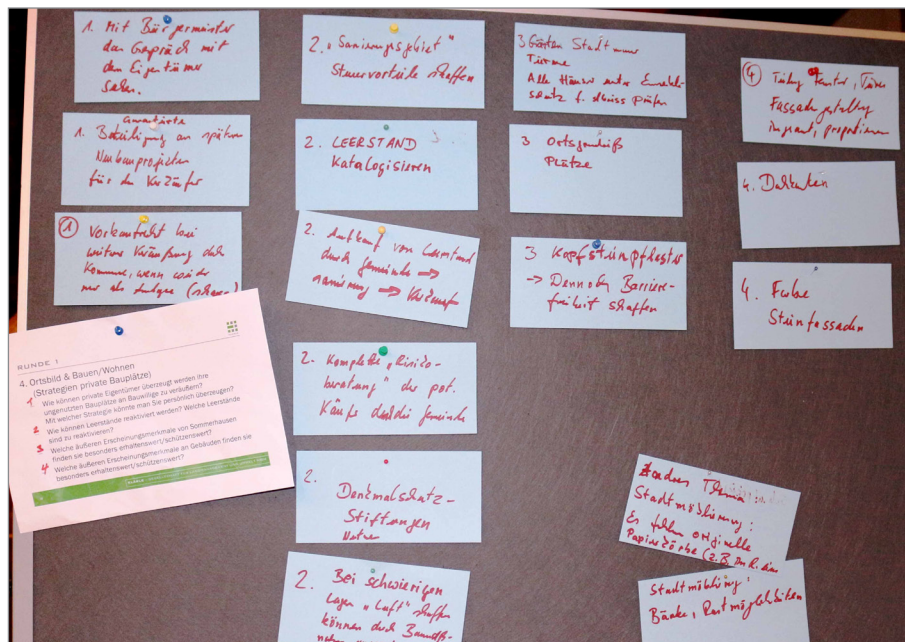 1. Mit Bürgermeister
das Gespräch mit
dem Eigentümer
suchen.
garantierte
1. Beteiligung an späteren
Neubauprojekten
für den Verkäufer
1 Vorkaufsrecht bei
weiterer Veräußerung durch
Kommune, wenn wieder
nur als Anlage
RUNDE 1
4. Ortsbild & Bauen/Wohnen
(Strategien private Bauplätze)
1 Wie können private Eigentümer überzeugt werden ihre
ungenutzten Bauplätze an Bauwillige zu veräußern?
Mit welcher Strategie könnte man Sie persönlich überzeugen?
2 Wie können Leerstände reaktiviert werden? Welche Leerstände
sind zu reaktivieren?
3 Welche äußeren Erscheinungsmerkmale von Sommerhausen
finden sie besonders erhaltenswert/schützenswert?
4 Welche äußeren Erscheinungsmerkmale an Gebäuden finden sie
besonders erhaltenswert/schützenswert?
2. „Sanierungsgebiet"
Steuervorteile schaffen
2. LEERSTAND
Katalogisieren
2. Aufkauf von Leerstand
durch Gemeinde →
Sanierung → Verkauf
2. Komplette „Risiko-
beratung" der pot.
Käufer durch die Gemeinde
2.
Denkmalschutz-
Stiftungen
Nutzen
2. Bei schwierigen
Lagen „Luft" schaffen
können durch
3 Gärten Stadtmauer
Türme
Alle Häuser unter Ensemble-
schutz f. Abriss prüfen
3 Ortsgrundriß
Plätze
3 Kopfsteinpflaster
→ Dennoch Barriere-
freiheit schaffen
4 Fenster, Türen
Fassadengestaltung
4. Dachgauben
4. Farbe
Steinfassaden
anderes Thema
Stadtmöblierung:
Es fehlen originelle
Papierkörbe (z.B.
Stadtmöblierung:
Bänke, Rastmöglichkeiten